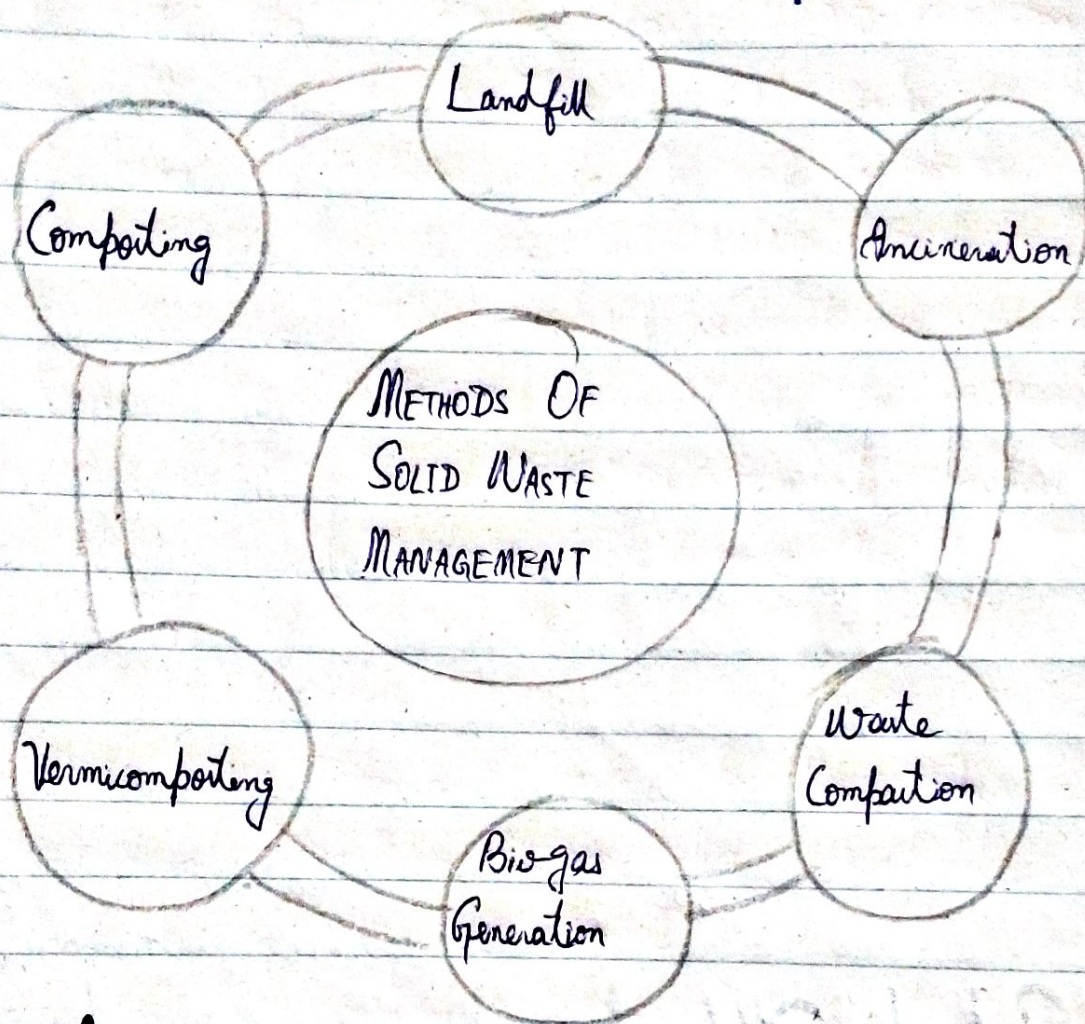 Landfill
Composting
Incineration
METHODS OF
SOLID WASTE
MANAGEMENT
Waste
Compaction
Vermicomposting
Bio-gas
Generation